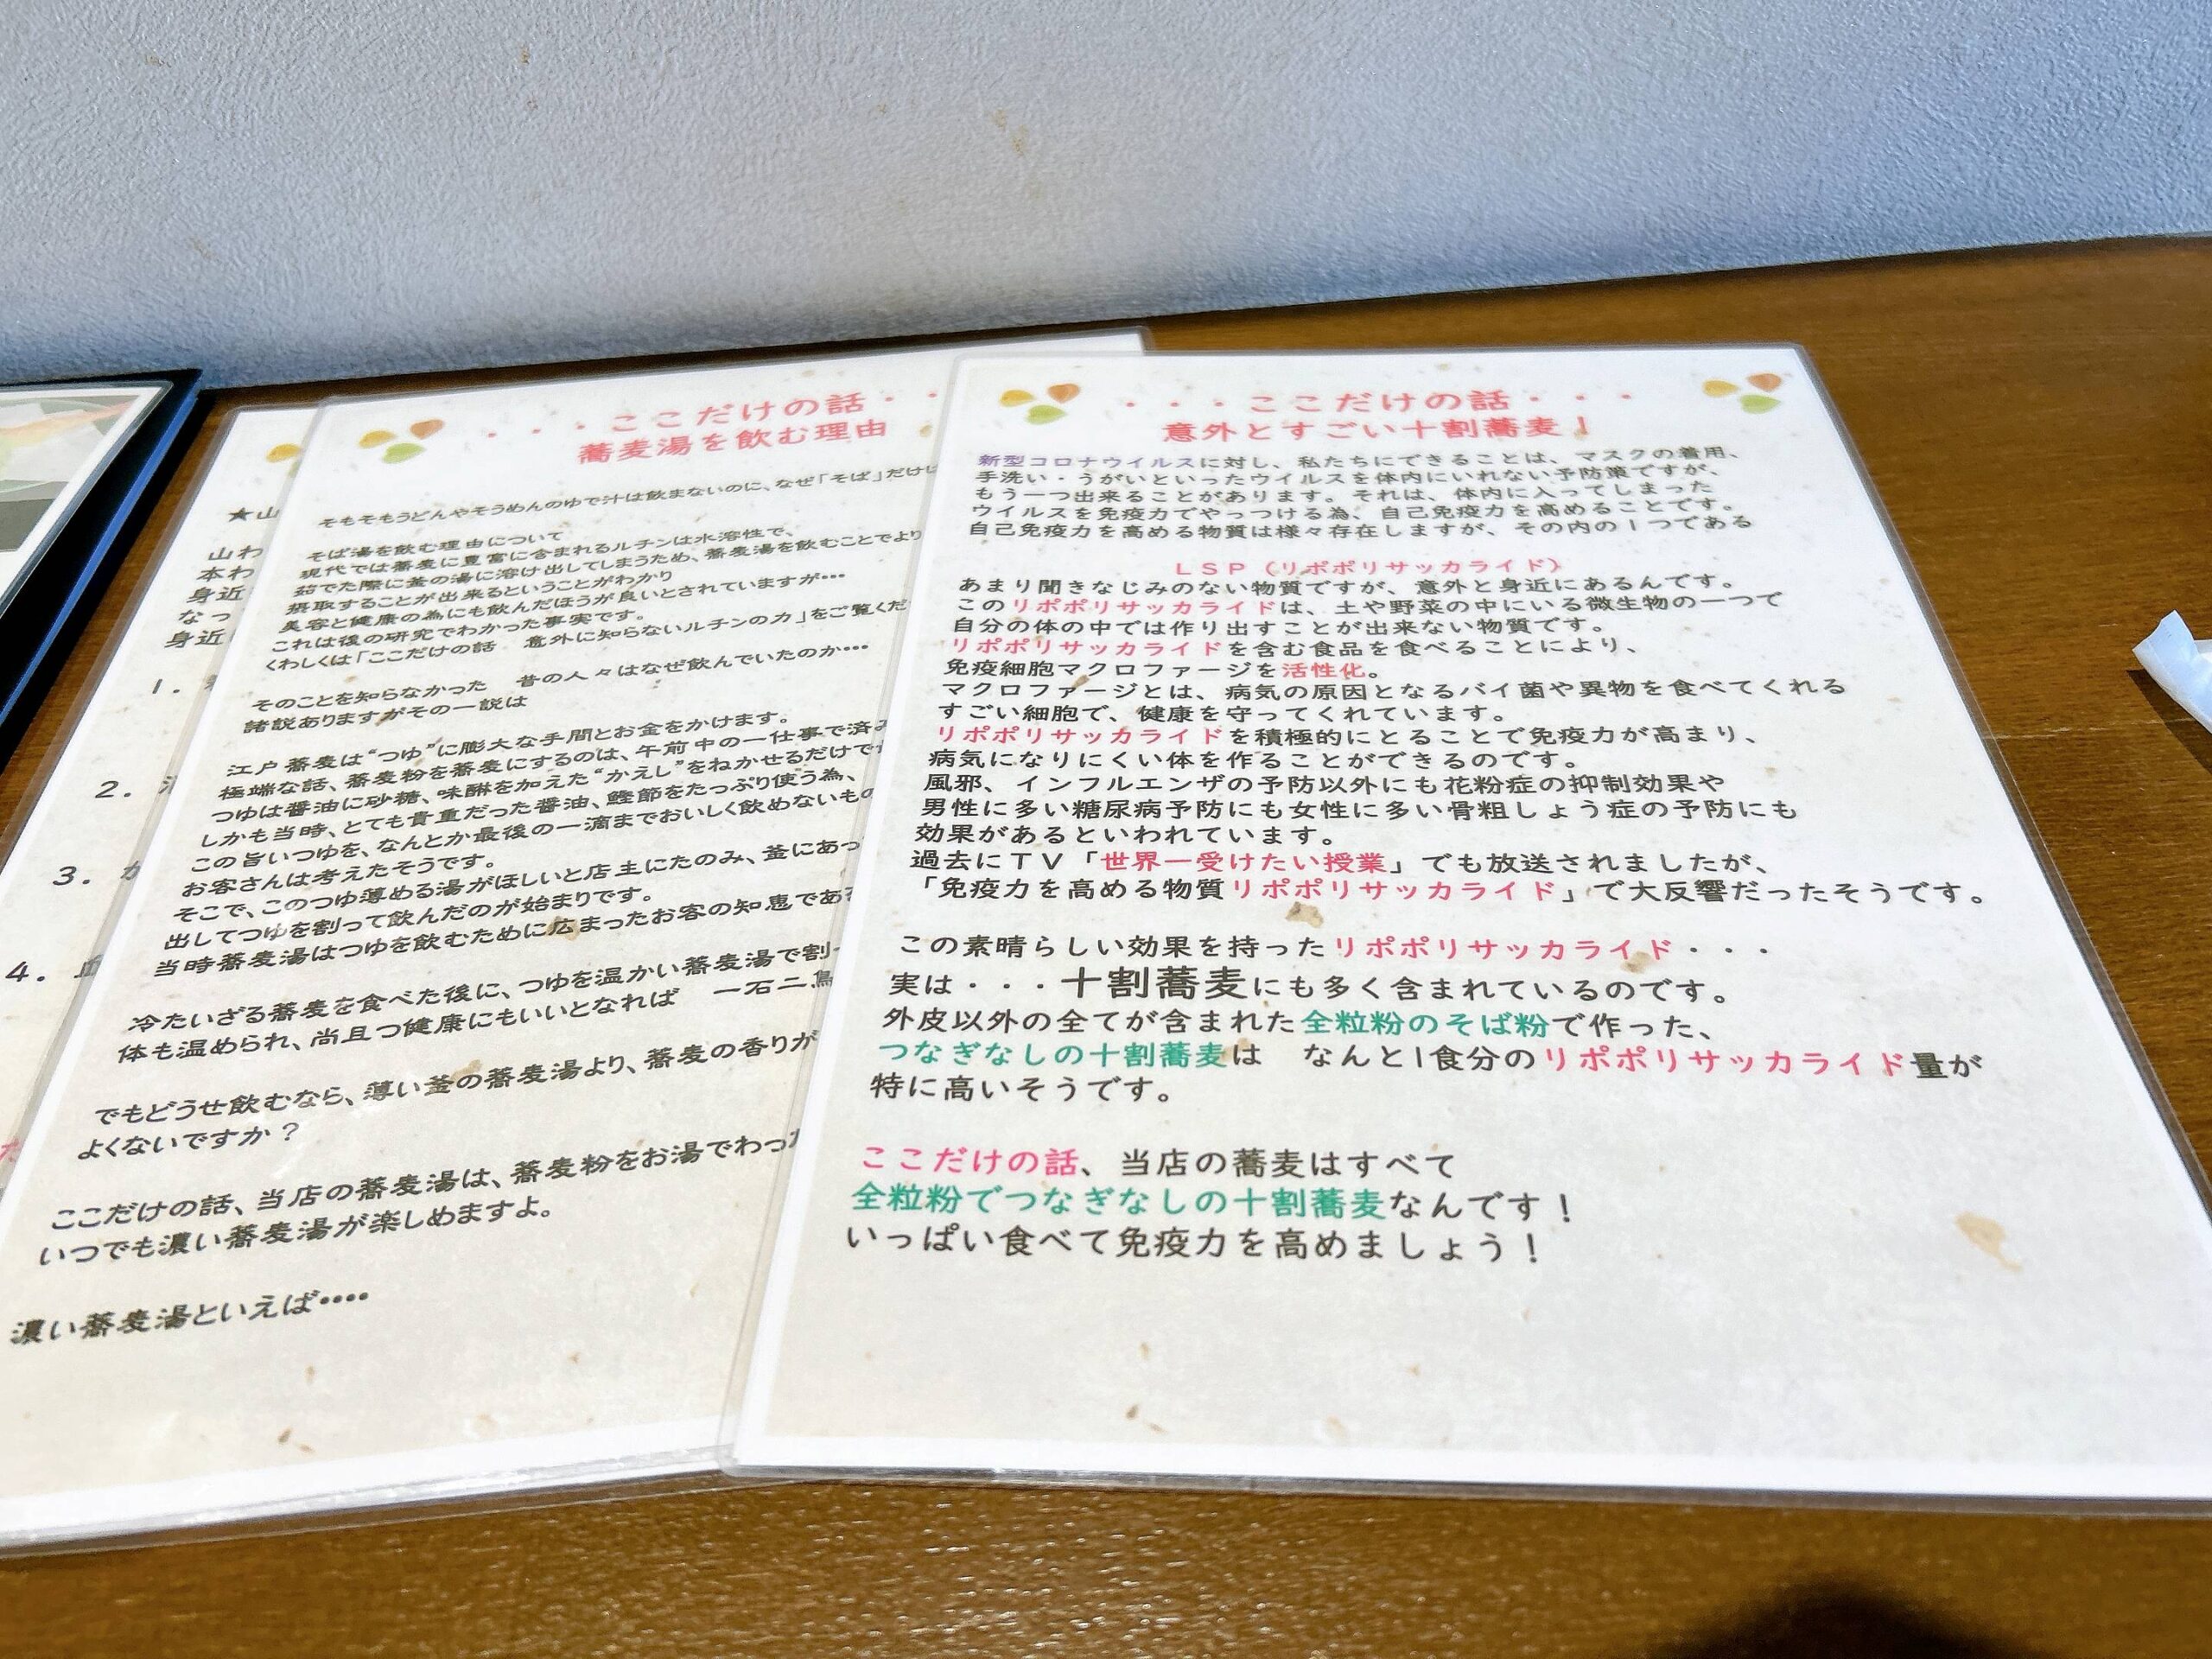 ★山
山わ
本わ
身近
なっ
身近
1.
2.
3.
4.
・・・ここだけの話・・
蕎麦湯を飲む理由
そもそもうどんやそうめんのゆで汁は飲まないのに、なぜ「そば」だけに
そば湯を飲む理由について
現代では蕎麦に豊富に含まれるルチンは水溶性で、
茹でた際に釜の湯に溶け出してしまうため、蕎麦湯を飲むことでより
摂取することが出来るということがわかり
美容と健康の為にも飲んだほうが良いとされていますが•••
これは後の研究でわかった事実です。
くわしくは「ここだけの話　意外に知らないルチンの力」をご覧くだ
そのことを知らなかった　昔の人々はなぜ飲んでいたのか•••
諸説ありますがその一説は
江戸蕎麦は“つゆ”に膨大な手間とお金をかけます。
極端な話、蕎麦粉を蕎麦にするのは、午前中の一仕事で済み
つゆは醤油に砂糖、味醂を加えた“かえし”をねかせるだけで
しかも当時、とても貴重だった醤油、鰹節をたっぷり使う為、
この旨いつゆを、なんとか最後の一滴までおいしく飲めないもの
お客さんは考えたそうです。
そこで、このつゆ薄める湯がほしいと店主にたのみ、釜にあっ
出してつゆを割って飲んだのが始まりです。
当時蕎麦湯はつゆを飲むために広まったお客の知恵であ
冷たいざる蕎麦を食べた後に、つゆを温かい蕎麦湯で割
体も温められ、尚且つ健康にもいいとなれば　一石二鳥
でもどうせ飲むなら、薄い釜の蕎麦湯より、蕎麦の香りが
よくないですか？
ここだけの話、当店の蕎麦湯は、蕎麦粉をお湯でわった
いつでも濃い蕎麦湯が楽しめますよ。
濃い蕎麦湯といえば••••
・・・ここだけの話・・・
意外とすごい十割蕎麦！
新型コロナウイルスに対し、私たちにできることは、マスクの着用、
手洗い・うがいといったウイルスを体内にいれない予防策ですが、
もう一つ出来ることがあります。それは、体内に入ってしまった
ウイルスを免疫力でやっつける為、自己免疫力を高めることです。
自己免疫力を高める物質は様々存在しますが、その内の1つである
LSP（リポポリサッカライド）
あまり聞きなじみのない物質ですが、意外と身近にあるんです。
このリポポリサッカライドは、土や野菜の中にいる微生物の一つで
自分の体の中では作り出すことが出来ない物質です。
リポポリサッカライドを含む食品を食べることにより、
免疫細胞マクロファージを活性化。
マクロファージとは、病気の原因となるバイ菌や異物を食べてくれる
すごい細胞で、健康を守ってくれています。
リポポリサッカライドを積極的にとることで免疫力が高まり、
病気になりにくい体を作ることができるのです。
風邪、インフルエンザの予防以外にも花粉症の抑制効果や
男性に多い糖尿病予防にも女性に多い骨粗しょう症の予防にも
効果があるといわれています。
過去にTV「世界一受けたい授業」でも放送されましたが、
「免疫力を高める物質リポポリサッカライド」で大反響だったそうです。
この素晴らしい効果を持ったリポポリサッカライド・・・
実は・・・十割蕎麦にも多く含まれているのです。
外皮以外の全てが含まれた全粒粉のそば粉で作った、
つなぎなしの十割蕎麦は　なんと1食分のリポポリサッカライド量が
特に高いそうです。
ここだけの話、当店の蕎麦はすべて
全粒粉でつなぎなしの十割蕎麦なんです！
いっぱい食べて免疫力を高めましょう！